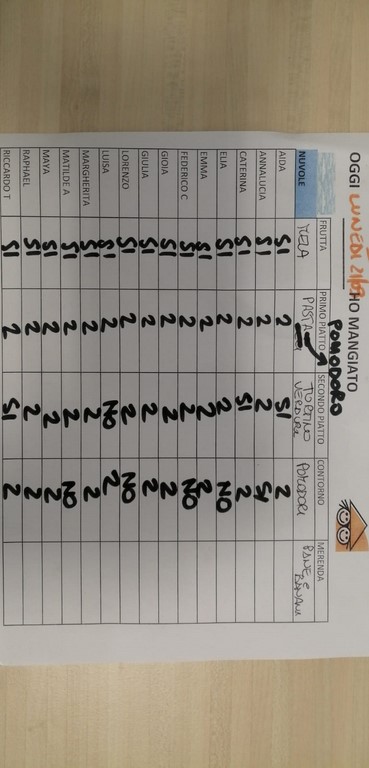 OGGI LUNEDÌ 21/09 HO MANGIATO
POMODORO
FRUTTA PRIMO PIATTO SECONDO PIATTO CONTORNO MERENDA
NUVOLE MELA PASTA TORTINO VERDURE POMODORI PANE E BANANA
AIDA SI 2 SI 2
ANNALUCIA SI 2 2 SI
CATERINA SI 2 SI 2
ELIA SI 2 2 NO
EMMA SI 2 2 2
FEDERICO C SI 2 2 NO
GIOIA SI 2 2 2
GIULIA SI 2 2 2
LORENZO SI 2 2 NO
LUISA SI 2 NO 2
MARGHERITA SI 2 2 2
MATILDE A SI 2 2 NO
MAYA SI 2 2 2
RAPHAEL SI 2 2 2
RICCARDO T SI 2 SI 2